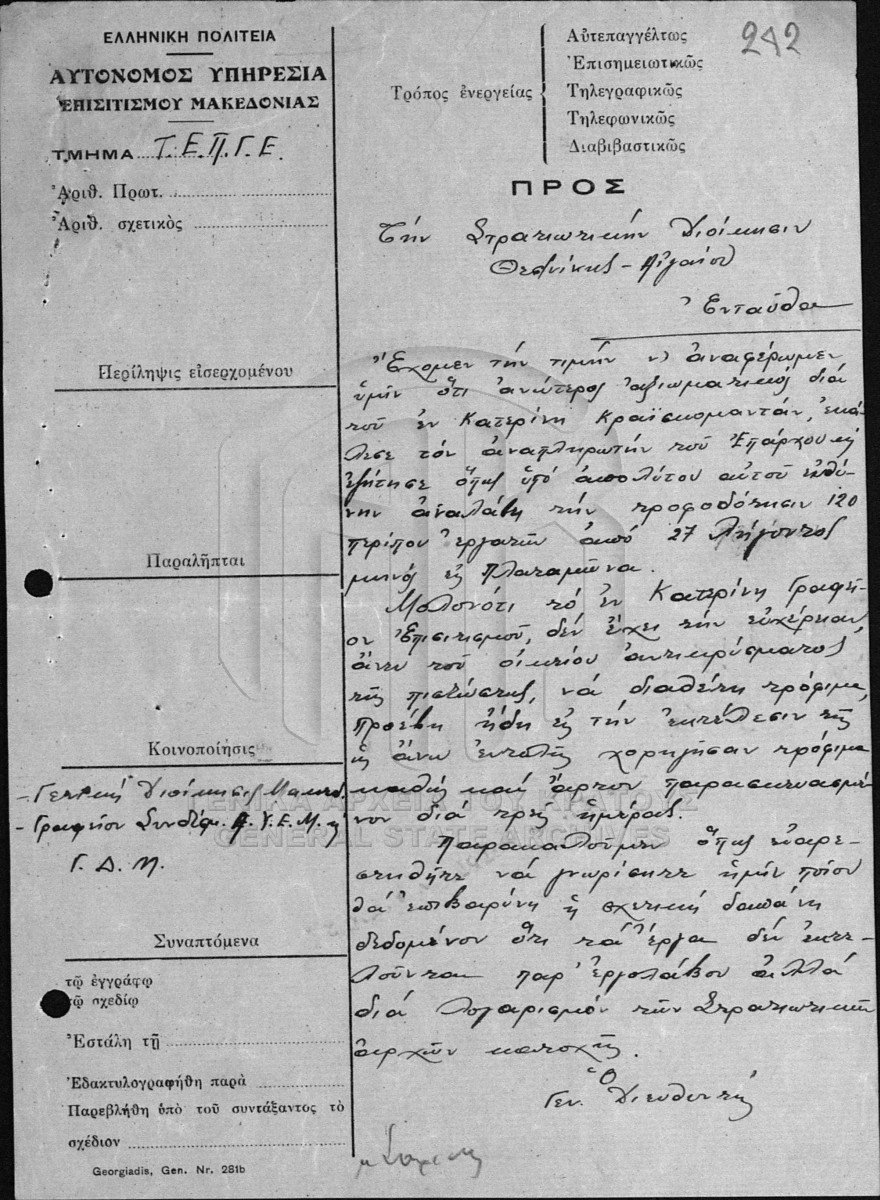 242
ΕΛΛΗΝΙΚΗ ΠΟΛΙΤΕΙΑ
ΑΥΤΟΝΟΜΟΣ ΥΠΗΡΕΣΙΑ
ΕΠΙΣΙΤΙΣΜΟΥ ΜΑΚΕΔΟΝΙΑΣ
ΤΜΗΜΑ Τ.Ε.Π.Γ.Ε.
Ἀριθ. Πρωτ.
Ἀριθ. σχετικὸς
Περίληψις εἰσερχομένου
Παραλῆπται
Κοινοποίησις
- Γενικὴ Διοίκησις Μακεδ.
- Γραφεῖον Συνδέσμ. Α.Υ.Ε.Μ.
Γ.Δ.Μ.
Συναπτόμενα
τῷ ἐγγράφῳ
τῷ σχεδίῳ
Ἐστάλη τῇ
Ἐδακτυλογραφήθη παρὰ
Παρεβλήθη ὑπὸ τοῦ συντάξαντος τὸ
σχέδιον
Georgiadis, Gen. Nr. 281b
Τρόπος ἐνεργείας
Αὐτεπαγγέλτως
Ἐπισημειωτικῶς
Τηλεγραφικῶς
Τηλεφωνικῶς
Διαβιβαστικῶς
ΠΡΟΣ
Τὴν Στρατιωτικὴν Διοίκησιν
Θεσ/νίκης - Αἰγαίου
Ἐνταῦθα
Ἔχομεν τὴν τιμὴν ν' ἀναφέρωμεν
ὑμῖν ὅτι ἀνώτερος ἀξιωματικὸς διὰ
τοῦ ἐν Κατερίνῃ Κραϊσκομαντάν, ἐκά-
λεσε τὸν ἀναπληρωτὴν τοῦ Ἐπάρχου κ
ἐζήτησε ὅπως ὑπὸ ἀπολύτου αὐτοῦ εὐθύ-
νην ἀναλάβῃ τὴν τροφοδότησιν 120
περίπου ἐργατῶν ἀπὸ 27 λήγοντος
μηνὸς εἰς Πλαταμῶνα.
Μολονότι τὸ ἐν Κατερίνῃ Γραφεῖ-
ον Ἐπισιτισμοῦ, δὲν ἔχει τὴν εὐχέρειαν
ἄνευ τοῦ οἰκείου ἀντικρύσματος
τῆς πιστώσεως, νὰ διαθέτῃ τρόφιμα,
προέβη ἤδη εἰς τὴν ἐκτέλεσιν τῆς
ὡς ἄνω ἐντολῆς χορηγῆσαν τρόφιμα
καθὼς καὶ ἄρτον παρασκευασμέ-
νον διὰ τρεῖς ἡμέρας.
Παρακαλοῦμεν ὅπως εὐαρε-
στηθῆτε νὰ γνωρίσητε ἡμῖν ποῖον
θὰ ἐπιβαρύνῃ ἡ σχετικὴ δαπάνη
δεδομένου ὅτι τὰ ἔργα δὲν ἐκτε-
λοῦνται παρ' ἐργολάβου ἀλλὰ
διὰ λογαριασμὸν τῶν Στρατιωτικῶν
ἀρχῶν κατοχῆς.
Ὁ
Γεν. Διευθυντὴς
ΓΕΝΙΚΑ ΑΡΧΕΙΑ ΤΟΥ ΚΡΑΤΟΥΣ
GENERAL STATE ARCHIVES